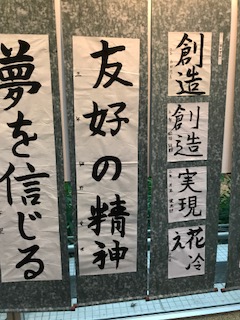 夢を信じる
友好の精神
創造
創造
実現
花冷え